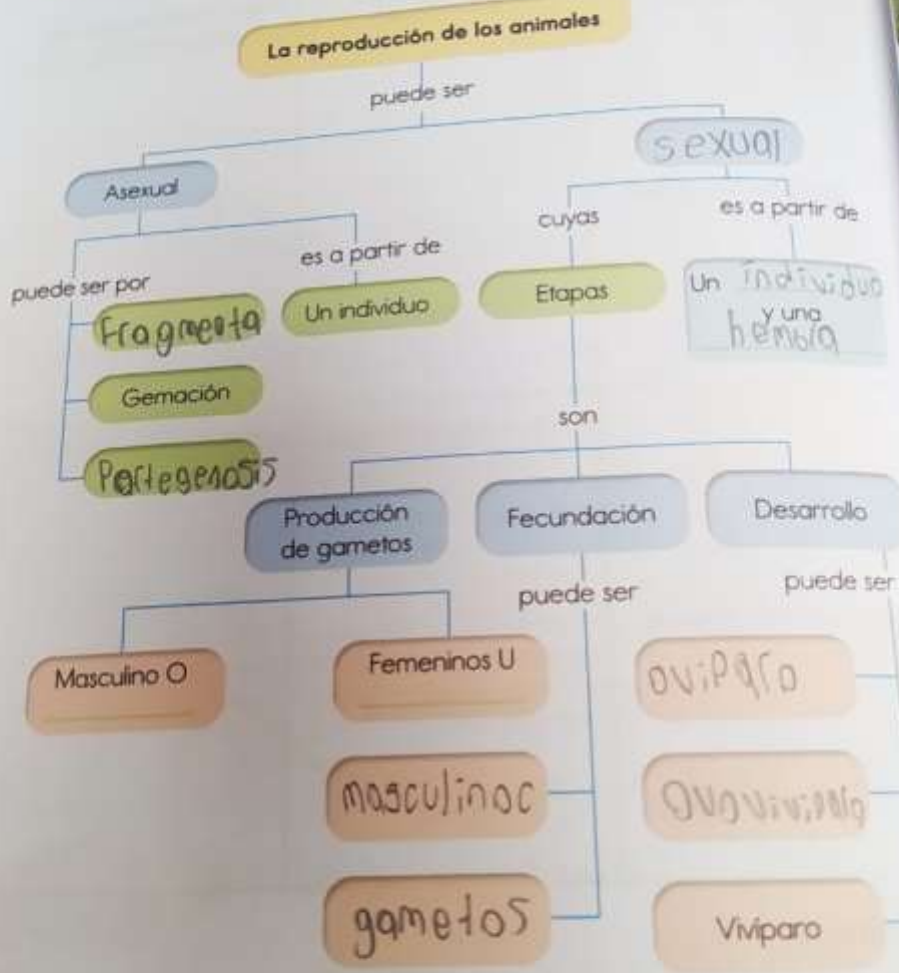 La reproducción de los animales
puede ser
Asexual
sexual
puede ser por
es a partir de
cuyas
es a partir de
Fragmenta
Un individuo
Etapas
Un individuo
y una
hembra
Gemación
Partegenosis
son
Producción
de gametos
Fecundación
Desarrollo
puede ser
puede ser
Masculino O
Femeninos U
oviparo
masculinoc
ovoviviparo
gametos
Vivíparo